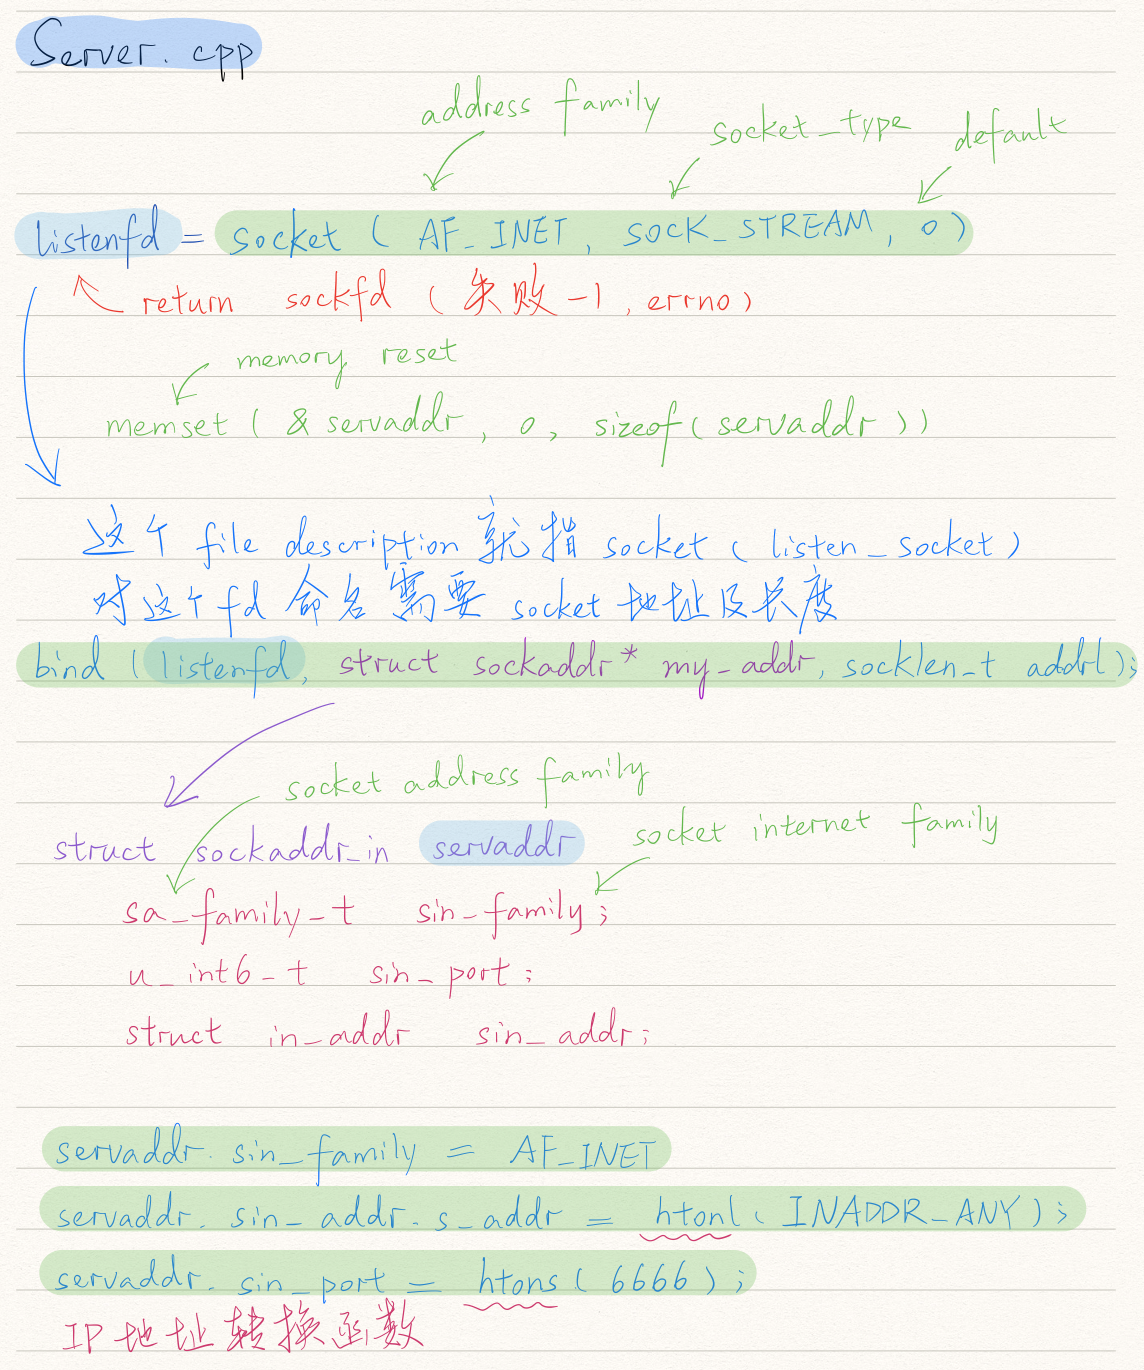 Server.cpp
address family
socket_type
default
listenfd = socket ( AF_INET, SOCK_STREAM, 0 )
return sockfd ( 失败 -1, errno )
memory reset
memset ( & servaddr, 0, sizeof( servaddr ) )
这个 file description 就指 socket ( listen_socket )
对这个fd 命名需要 socket 地址及长度
bind ( listenfd, struct sockaddr* my_addr, socklen_t addrl );
socket address family
socket internet family
struct sockaddr_in servaddr
sa_family_t sin_family;
u_int6_t sin_port;
struct in_addr sin_addr;
servaddr. sin_family = AF_INET
servaddr. sin_addr. s_addr = htonl ( INADDR_ANY );
servaddr. sin_port = htons ( 6666 );
IP 地址转换函数